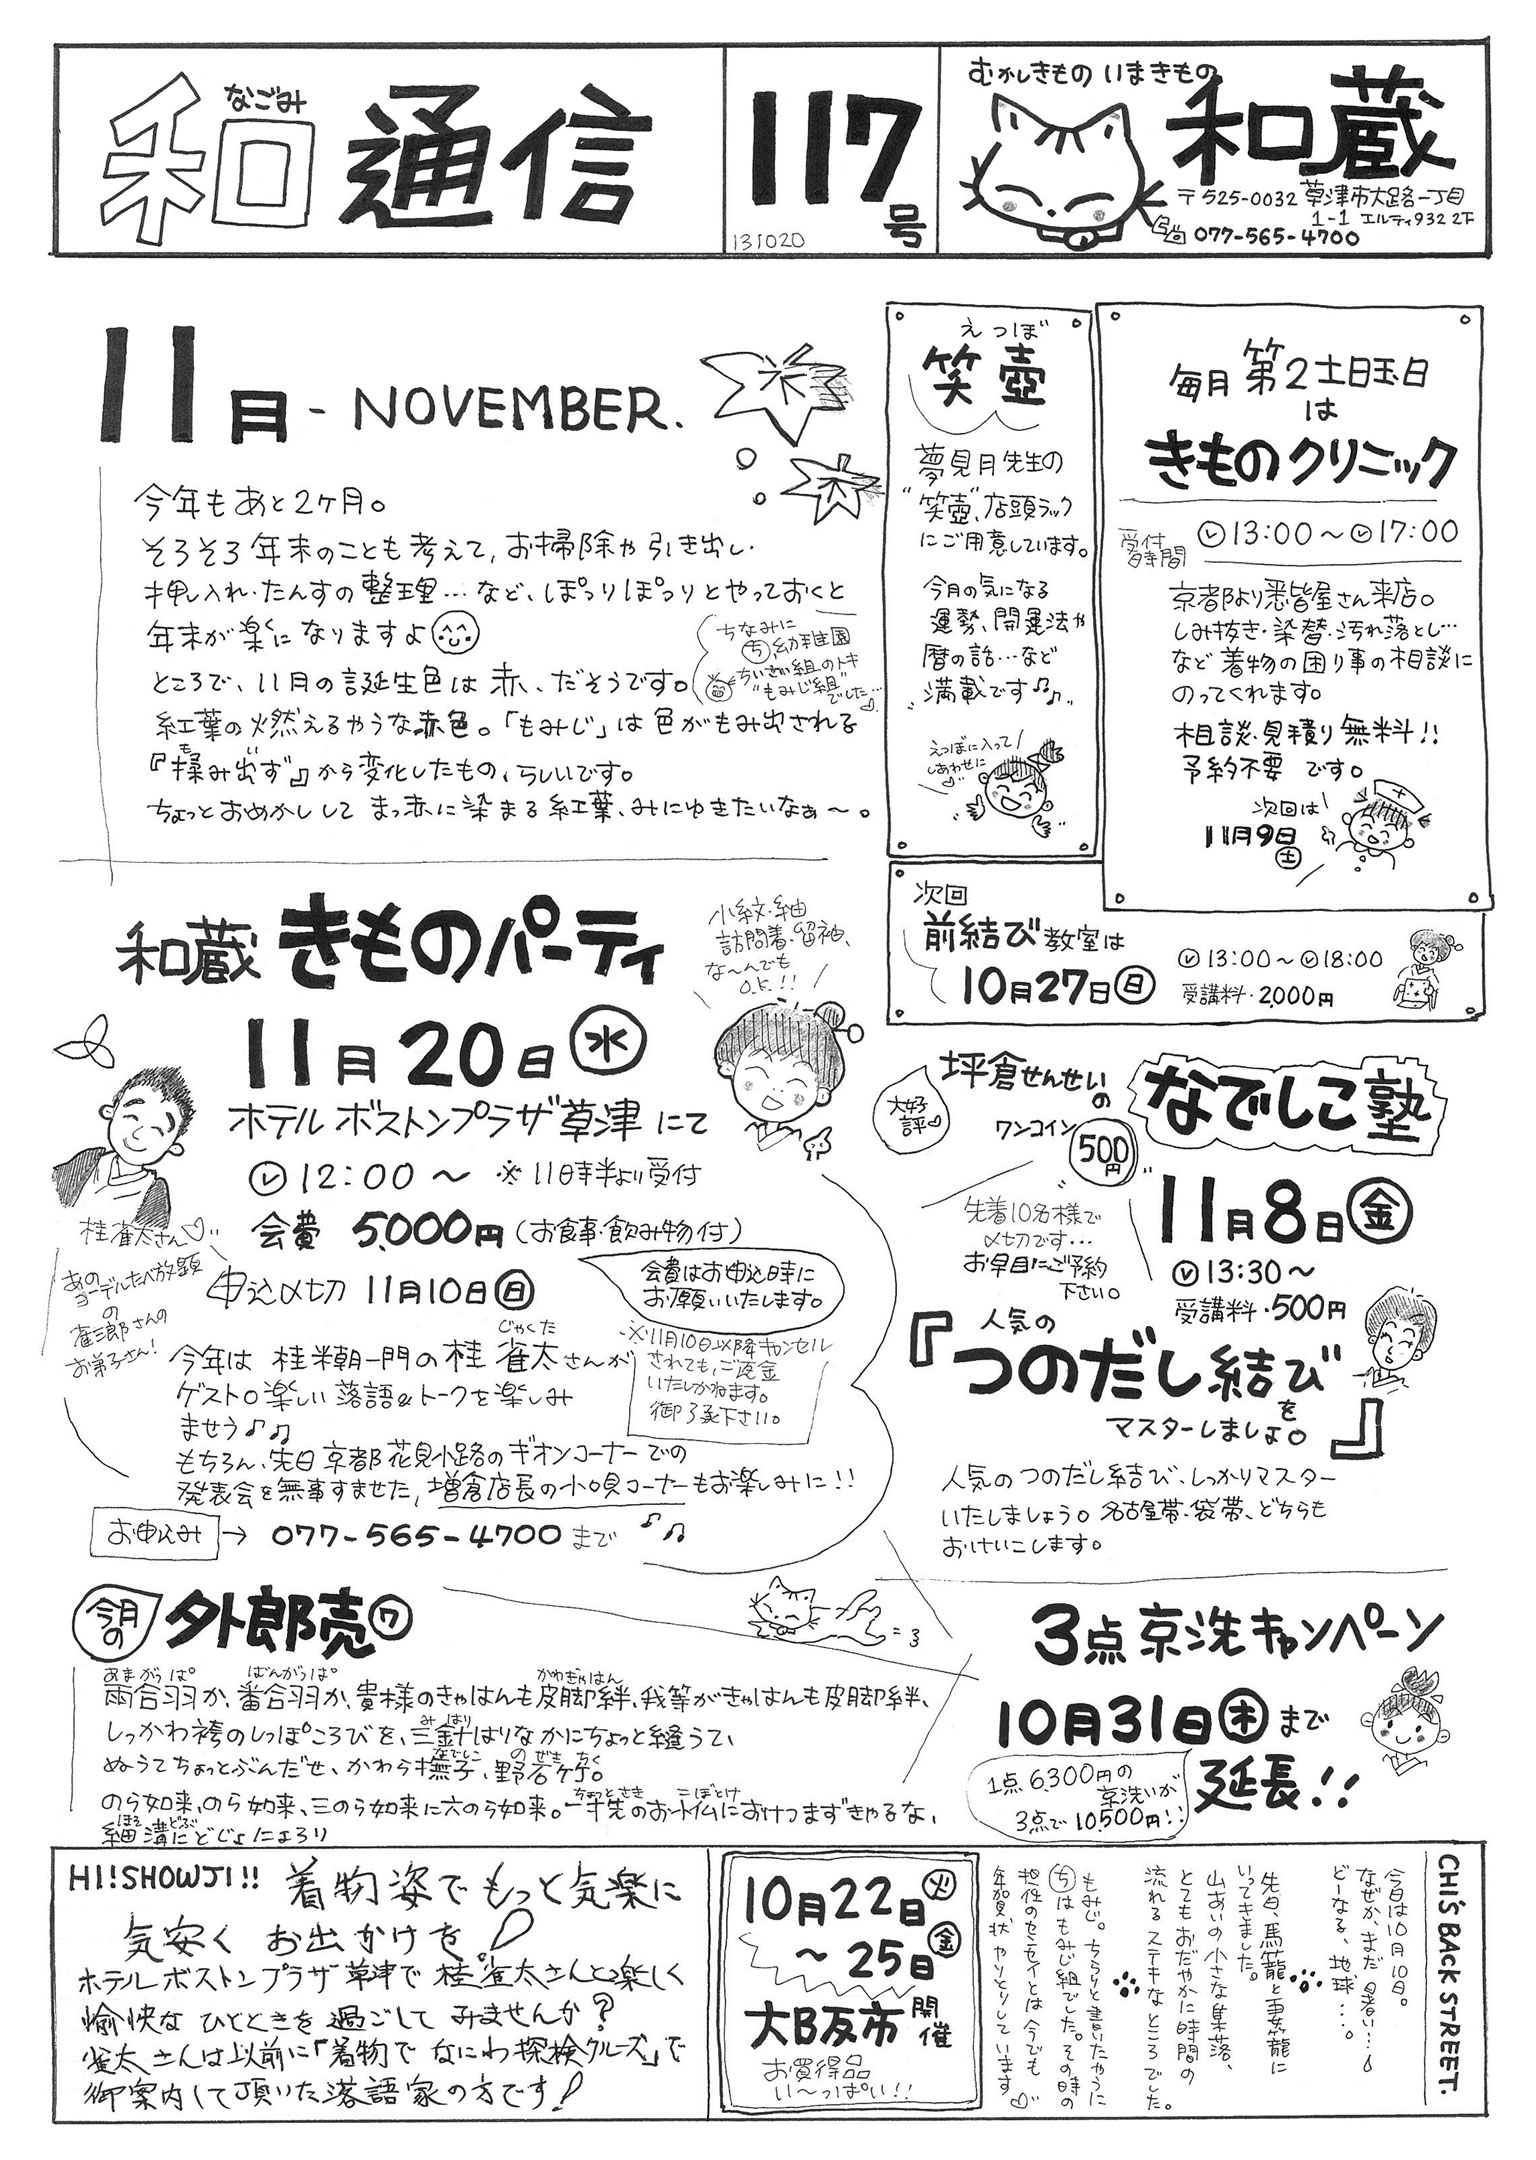 なごみ
和通信
117号
131020
むかしきもの いまきもの
和蔵
〒525-0032 草津市大路一丁目
1-1 エルティ932 2F
077-565-4700
11月 - NOVEMBER.
今年もあと2ヶ月。
そろそろ年末のことも考えて、お掃除や引き出し・
押し入れ・たんすの整理…など、ぽつりぽつりとやっておくと
年末が楽になりますよ
ところで、11月の誕生色は赤、だそうです。
紅葉の燃えるやうな赤色。「もみじ」は色がもみ出される
『揉み出ず』から変化したもの、らしいです。
ちょっとおめかしして まっ赤に染まる紅葉、みにゆきたいなぁ〜。
ちなみに
ち幼稚園
ちいさい組のトキ
"もみじ組"
でした…
えつぼ
笑壺
夢見月先生の
"笑壺"、店頭ラック
にご用意しています。
今月の気になる
運勢、開運法や
暦の話…など
満載です♪♪
えつぼに入って
しあわせに
毎月 第2土曜日
は
きものクリニック
受付時間
13:00〜17:00
京都より悉皆屋さん来店。
しみ抜き・染替・汚れ落とし…
など着物の困り事の相談に
のってくれます。
相談・見積り無料!!
予約不要 です。
次回は
11月9日(土)
次回
前結び教室は
10月27日(日)
13:00〜18:00
受講料・2,000円
和蔵 きものパーティ
11月20日(水)
ホテル ボストンプラザ草津 にて
12:00〜 ※11時半より受付
会費 5,000円(お食事・飲み物付)
申込〆切 11月10日(日)
小紋・紬
訪問着・留袖、
な〜んでも
O.K.!!
会費はお申込時に
お願いいたします。
※11月10日以降キャンセル
されても、ご返金
いたしかねます。
御了承下さい。
桂雀太さん♡
あの
ヨーデルたべ放題
の
雀三郎さんの
お弟子さん!
じゃくた
今年は 桂米朝一門の桂 雀太さんが
ゲスト。楽しい落語&トークを楽しみ
ませう♪♫
もちろん、先日京都花見小路のギオンコーナーでの
発表会を無事すませた、増倉店長の小唄コーナーもお楽しみに!!
お申込み → 077-565-4700 まで
大好評♡
坪倉せんせい
の
ワンコイン
500円
なでしこ塾
先着10名様で
〆切です…
お早目にご予約
下さい。
11月8日(金)
13:30〜
受講料・500円
人気の
『つのだし結び』
を
マスターしましょ。
人気のつのだし結び、しっかりマスター
いたしましょう。名古屋帯・袋帯、どちらも
おけいこします。
今月の 外郎売 7
あまがっぱ ばんがっぱ かわぎゃはん
雨合羽か、番合羽か、貴様のきゃはんも皮脚絆、我等がきゃはんも皮脚絆、
みはり
しっかわ袴のしっぽころびを、三針はりなかにちょっと縫うて、
なでしこ のぜきちく
ぬうてちょっとぶんだせ、かわら撫子、野石竹。
ちょっとさき こぼとけ
のら如来、のら如来、三のら如来に六のら如来。一寸先のお小仏におけつまずきゃるな、
ほそ どぶ
細溝にどじょにょろり
3点京洗キャンペーン
10月31日(木)まで
延長!!
1点6,300円の
京洗いが
3点で10,500円!!
HI!SHOWJI!! 着物姿でもっと気楽に
気安く お出かけを!
ホテルボストンプラザ草津で桂雀太さんと楽しく
愉快な ひとときを過ごして みませんか?
雀太さんは以前に「着物で なにわ探検クルーズ」で
御案内して頂いた落語家の方です!
10月22日(火)
〜25日(金)
大阪市開催
お買得品
い〜っぱい!!
CHI'S BACK STREET.
今日は10月10日。
なぜか、まだ暑い…。
どーなる、地球…。
先日、馬籠と妻籠に
いってきました。
山あいの小さな集落、
とてもおだやかに時間の
流れるステキなところでした。
もみじ。ちらりと書いたやうに
ちはもみじ組でした。その時の
担任のセンセイとは今でも
年賀状やりとりしています♡